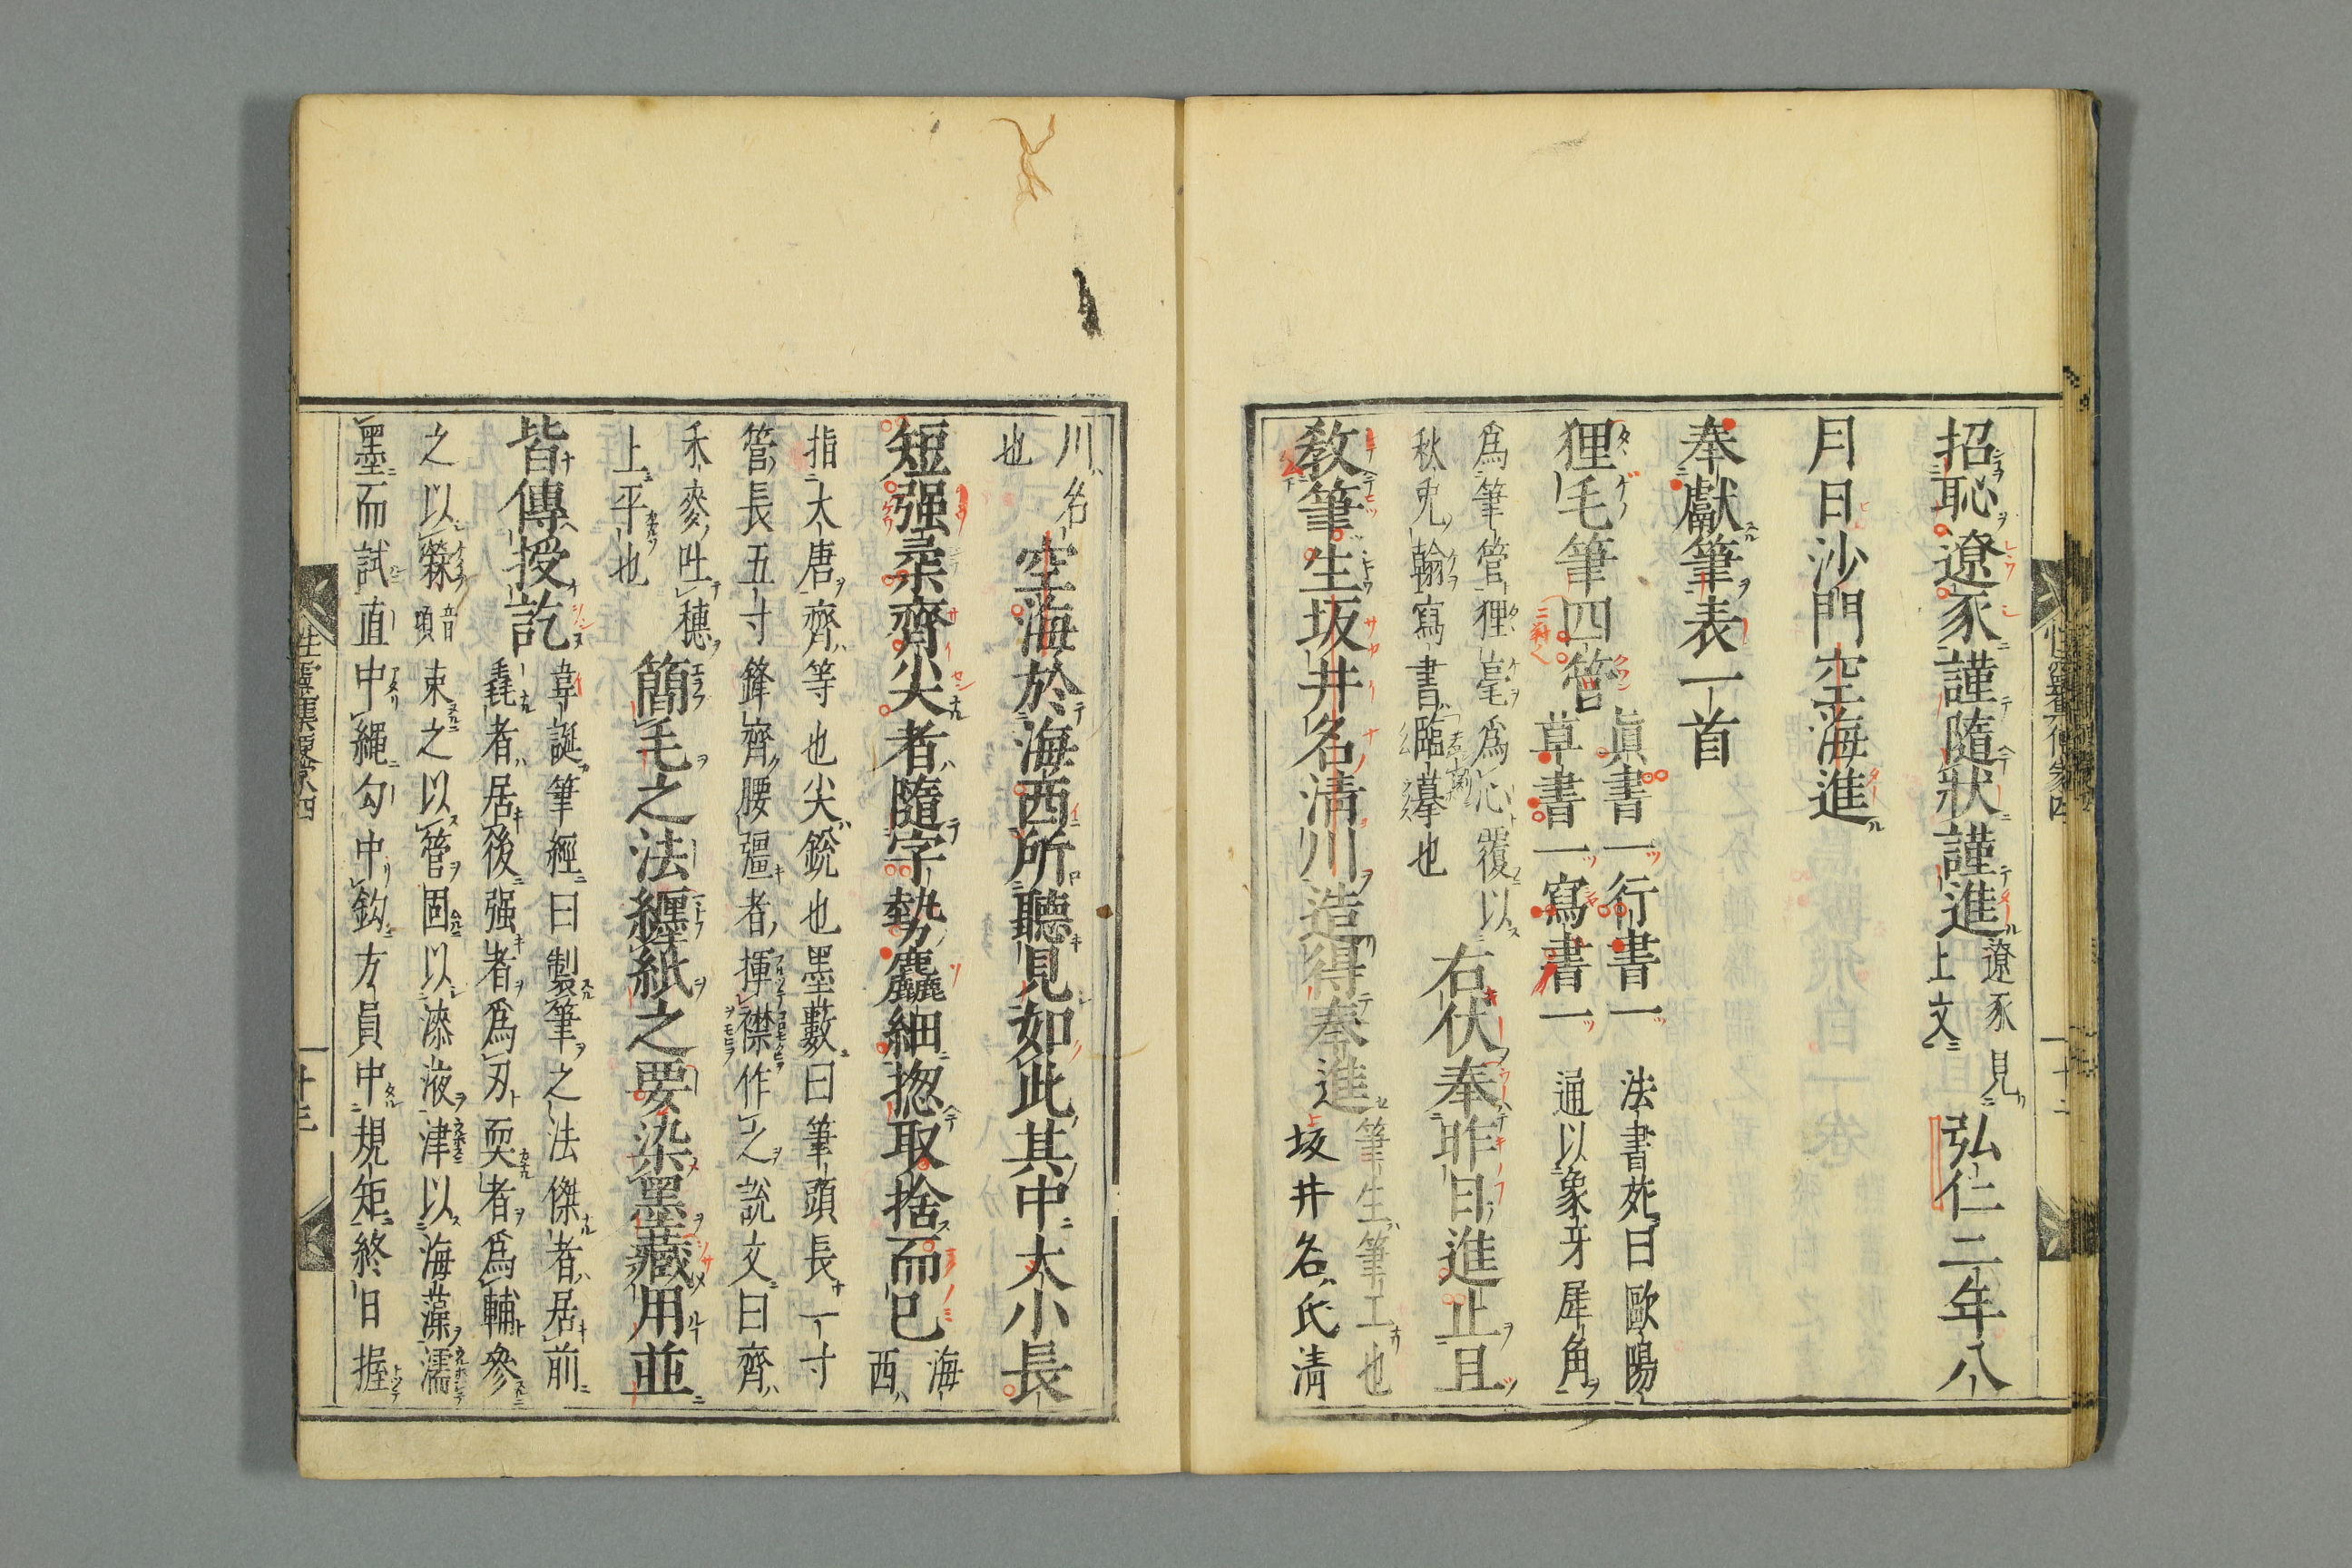 招恥遼豕謹隨狀謹進
遼豕見
上文
弘仁二年八
月日沙門空海進
奉獻筆表一首
狸毛筆四管
眞書一行書一
草書一寫書一
法書苑曰歐陽
通以象牙犀角
爲筆管狸毫爲心覆以
秋兎翰寫書臨摹也
右伏奉昨日進止且
教筆生坂井名清川造得奉進
筆生筆工也
坂井名氏清
川名
也
空海於海西所聽見如此其中大小長
短强柔齊尖者隨字勢麤細揔取捨而已
海
西
指大唐齊等也尖銳也墨藪曰筆頭長一寸
管長五寸鋒齊腰彊者揮襟作之說文曰齊
禾麥吐穗
上平也
簡毛之法纏紙之要染墨藏用並
皆傳授訖
韋誕筆經曰製筆之法傑者居前
毳者居後强者爲刃耎者爲輔參
之以檾
音
頃
束之以管固以漆液津以海藻濡
墨而試直中繩勾中鈎方員中規矩終日握
性靈集便蒙四
十三